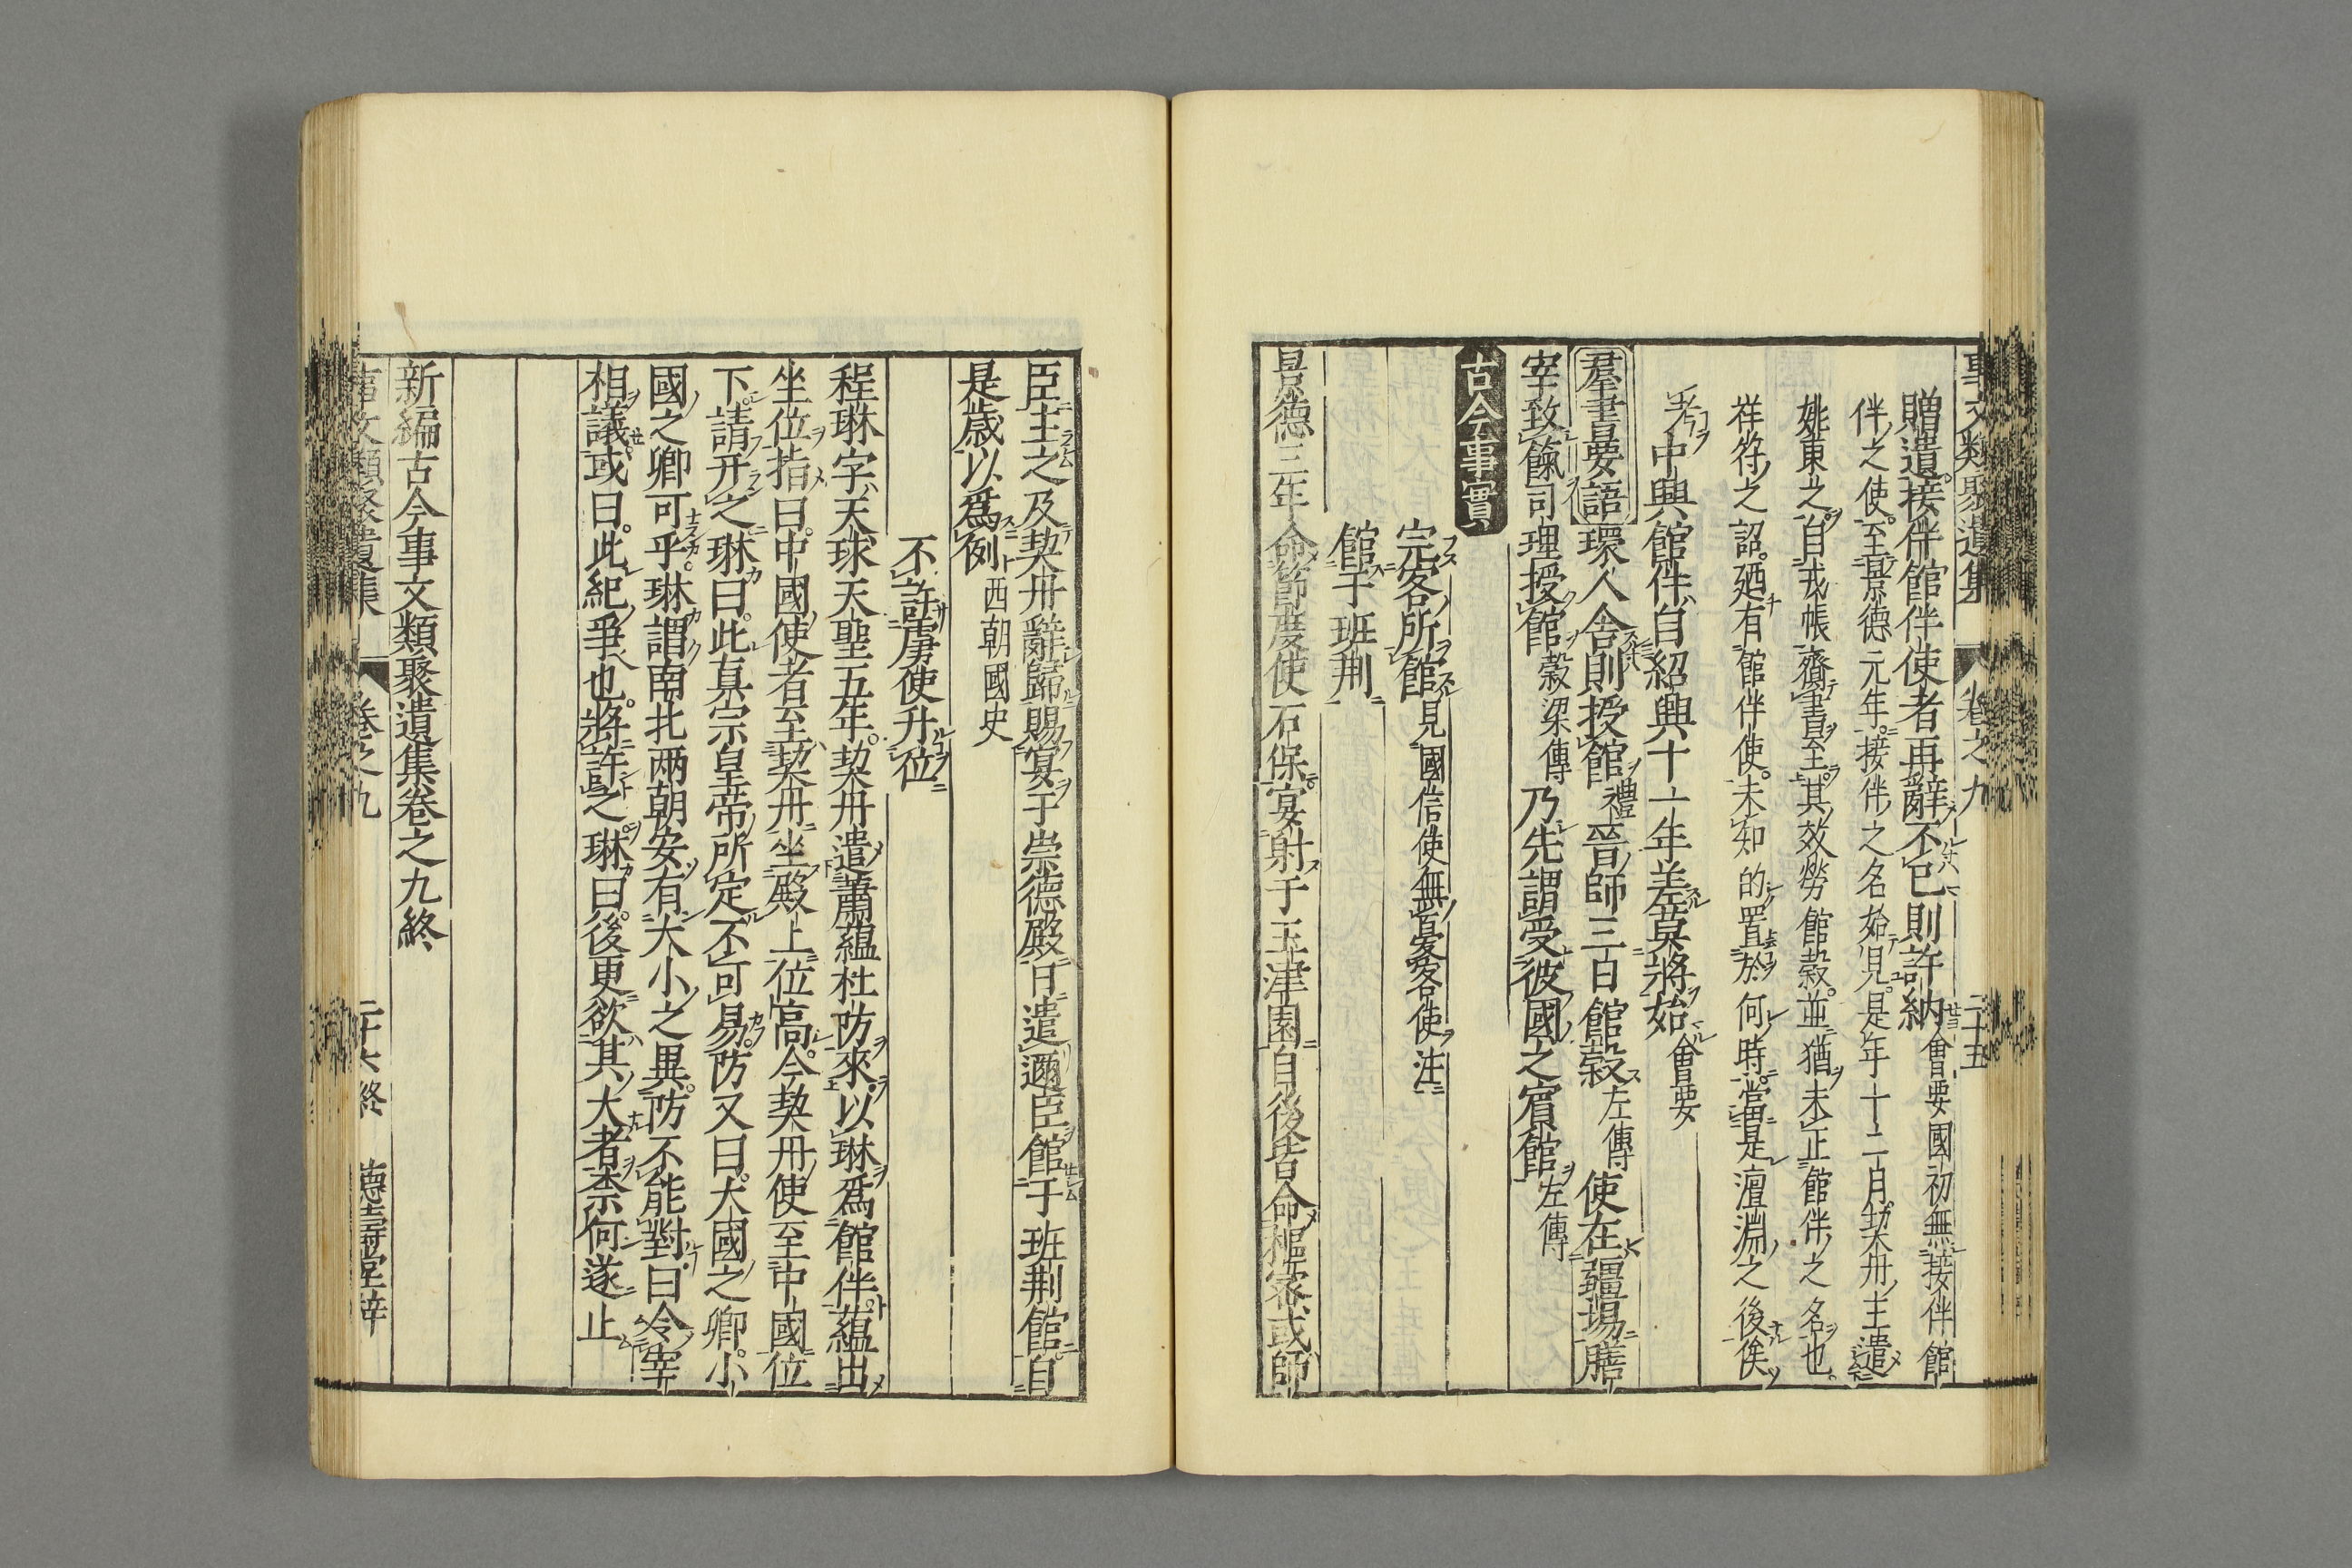 事文類聚遺集 卷之九 二十五
贈遺接伴館伴使者再辭不已則許納會要國初無接伴館
伴之使至景德元年接伴之名始見是年十二月契丹主遣
姚東之自戎帳齎書至其效勞館穀並猶未正館伴之名也
祥符之詔廼有館伴使未知的置於何時當是澶淵之後俟
考中興館伴自紹興十一年差莫將始會要
羣書要語環人舍則授館禮晉師三日館穀左傳使在疆埸膳
宰致餼司理授館穀梁傳乃先謂受彼國之賓館左傳
古今事實
完客所館見國信使無憂客使注
館于班荆
景德三年命節度使石保宴射于玉津園自後皆命樞密或師
臣主之及契丹辭歸賜宴于崇德殿日遣邇臣館于班荆館自
是歲以爲例西朝國史
不許虜使升位
程琳字天球天聖五年契丹遣蕭蘊杜防來以琳爲館伴蘊出
坐位指曰中國使者至契丹坐殿上位高今契丹使至中國位
下請升之琳曰此真宗皇帝所定不可易防又曰大國之卿小
國之卿可乎琳謂南北兩朝安有大小之異防不能對曰令宰
相議或曰此紀爭也將許之琳曰後更欲其大者柰何遂止
新編古今事文類聚遺集卷之九終
事文類聚遺集 卷之九 二十六終 德壽堂梓